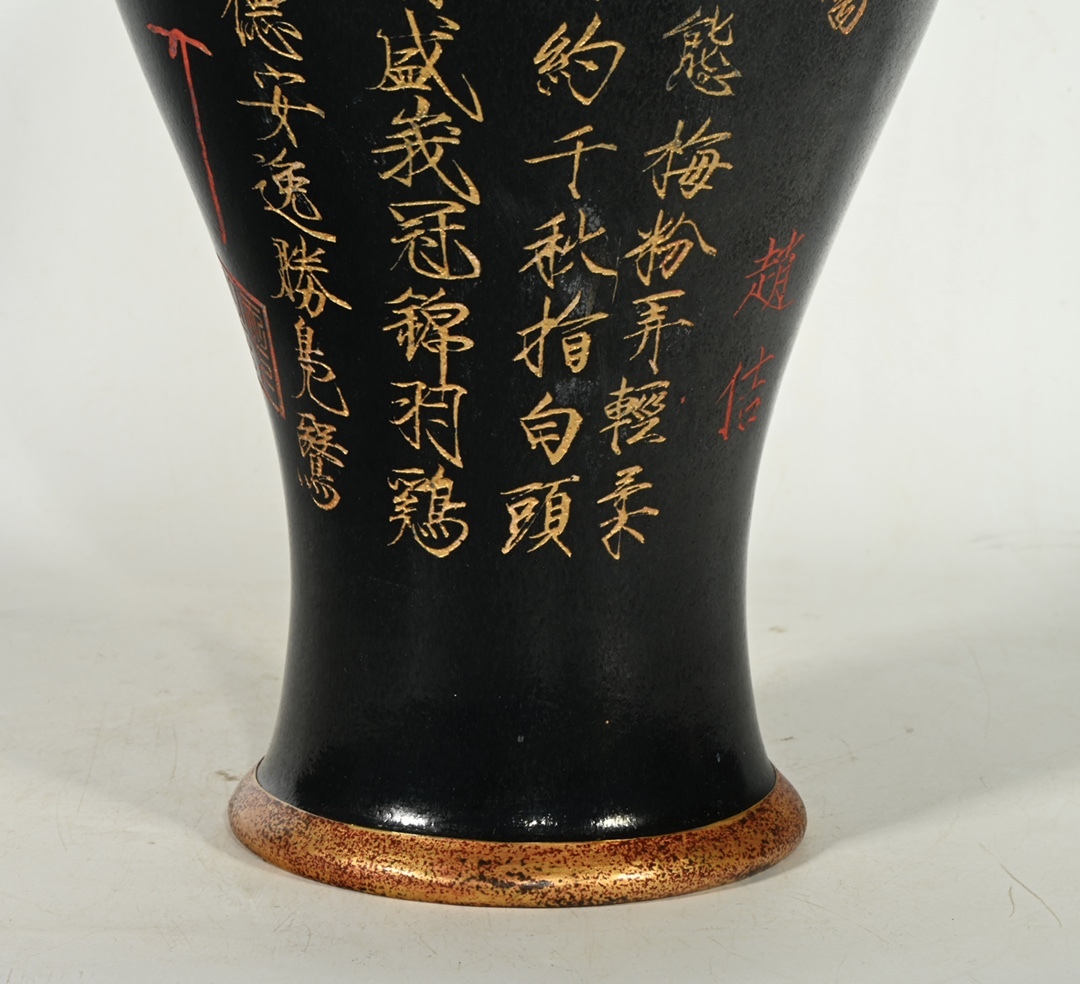 趙佶
態梅粉弄輕柔
約千秋指白頭
盛峩冠錦羽鷄
德安逸勝鳧鷖